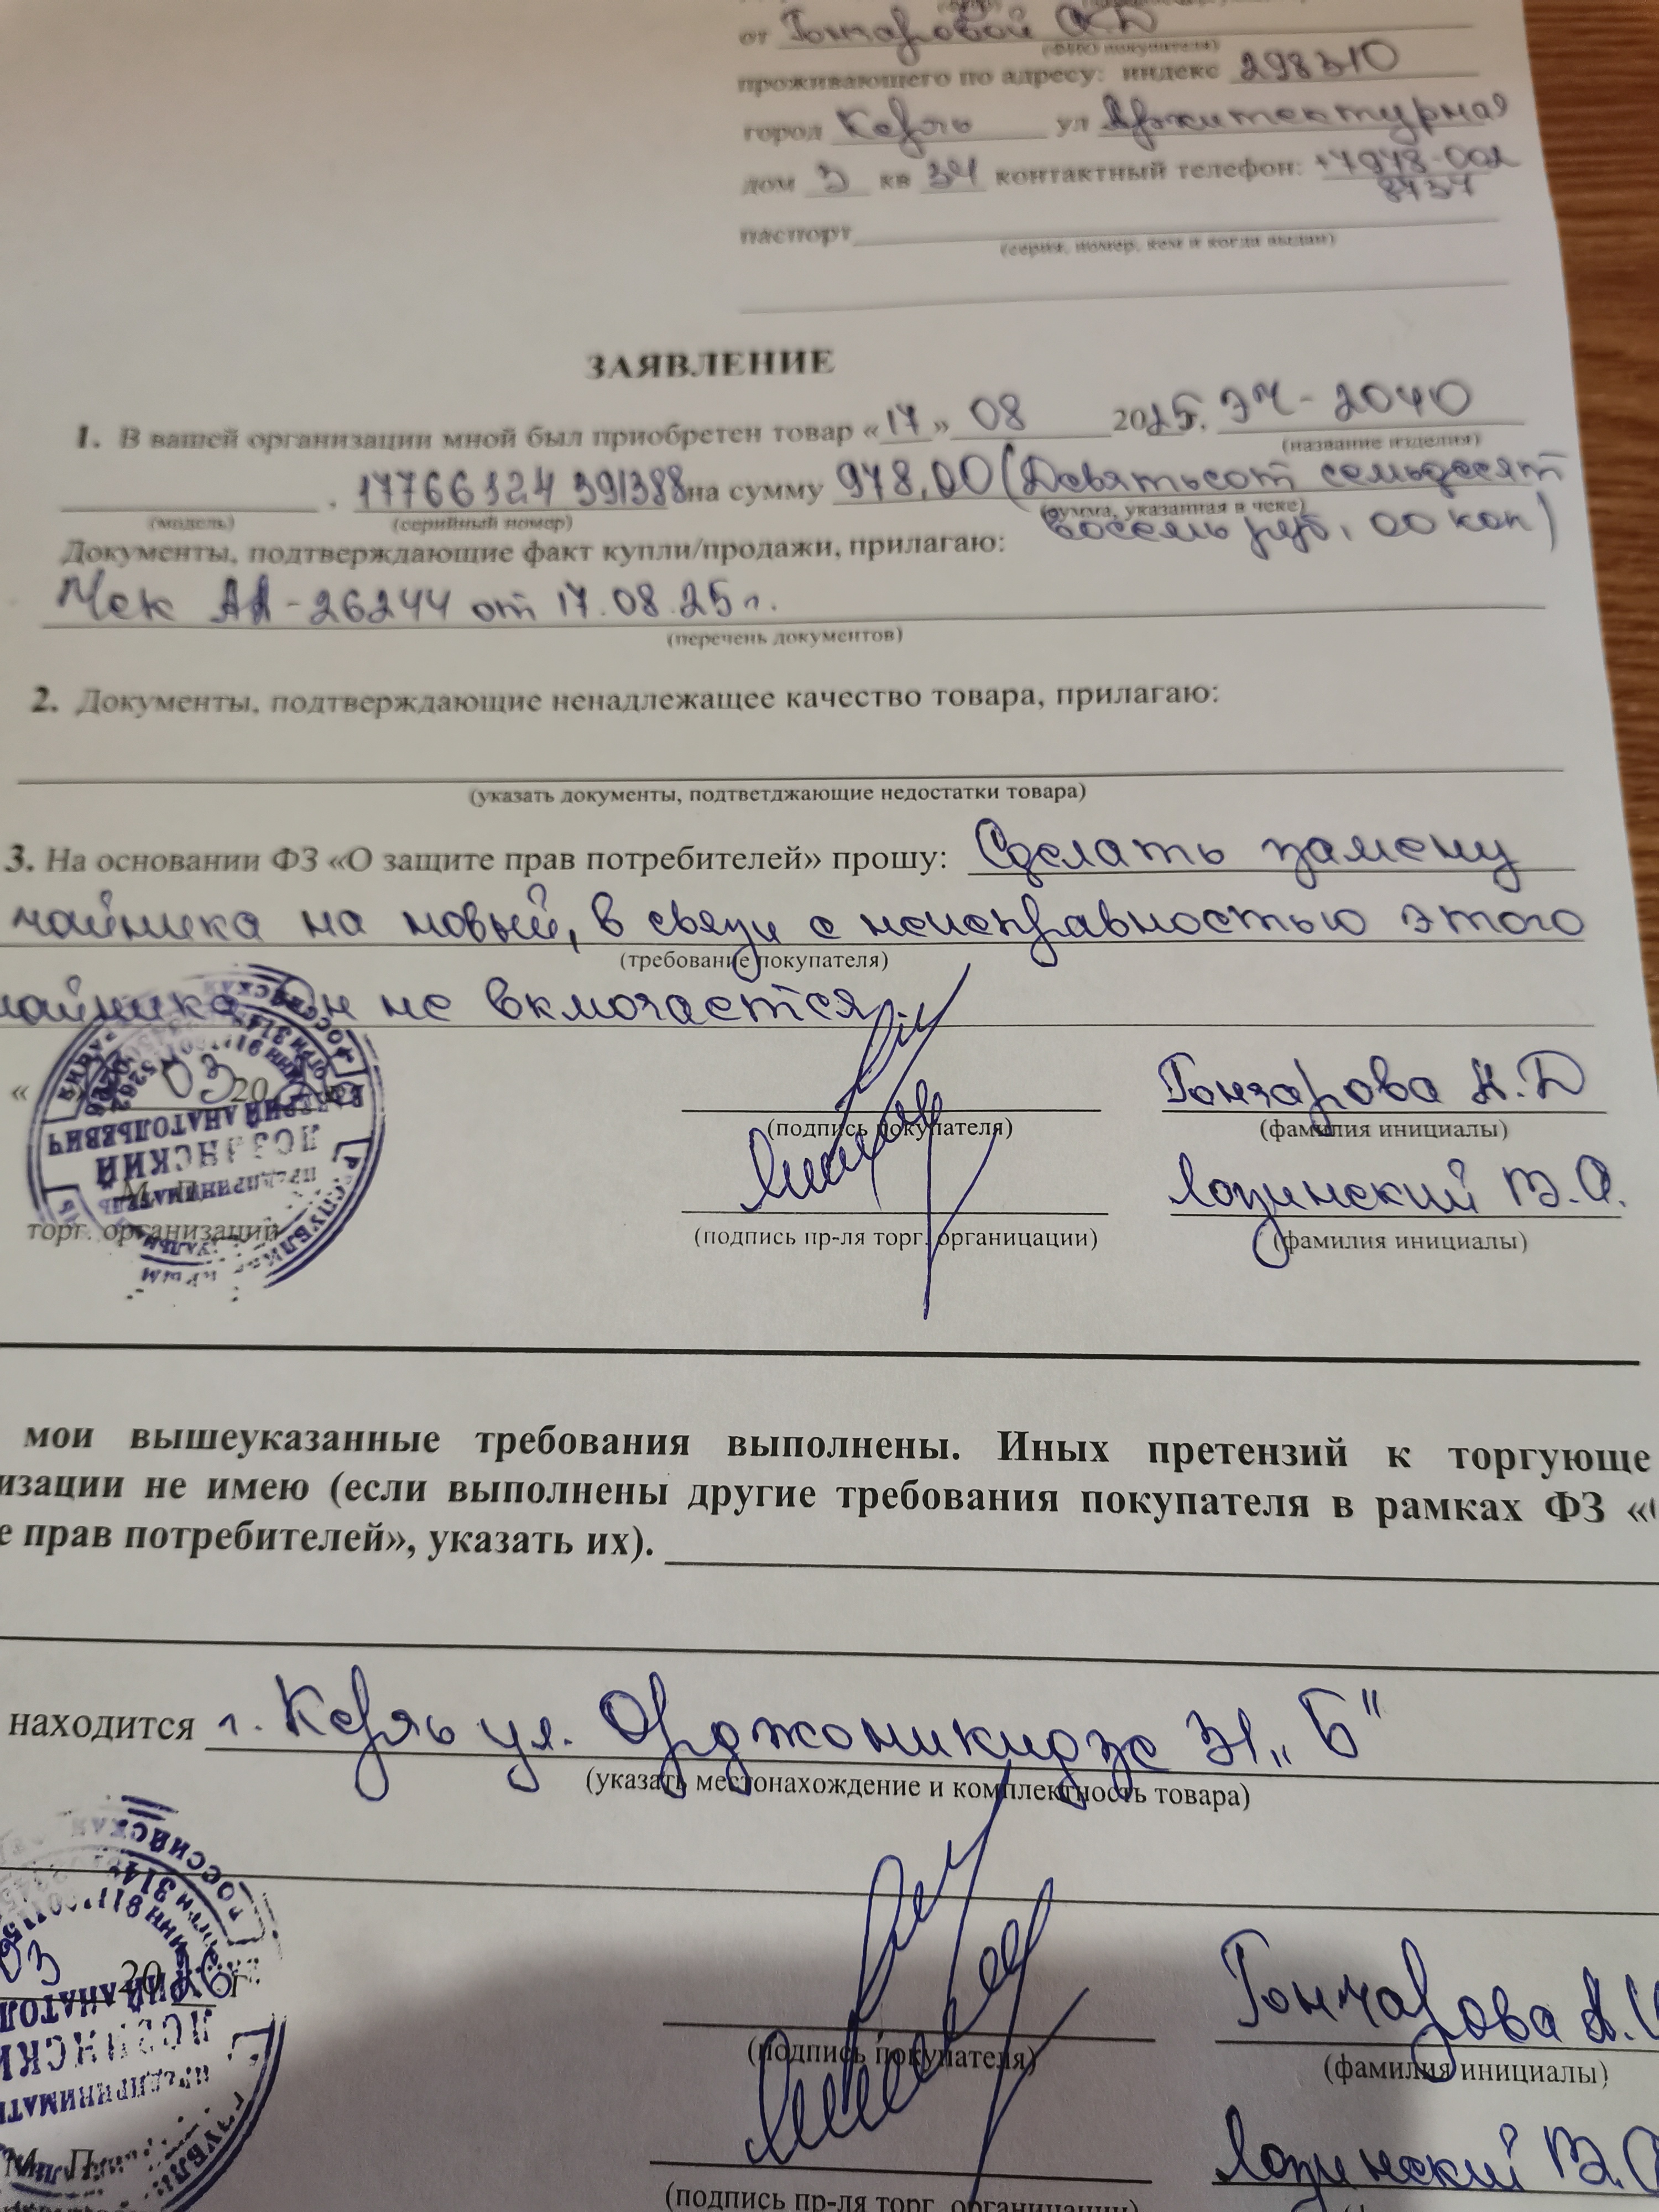 от Гончаровой А.Д
(ФИО покупателя)
проживающего по адресу: индекс 298310
город Керчь ул Архитектурная
дом 3 кв 34 контактный телефон: +7978-002
8737
паспорт
(серия, номер, кем и когда выдан)
ЗАЯВЛЕНИЕ
1. В вашей организации мной был приобретен товар «17» 08 2025г. ЭЧ-2040
(название изделия)
17766324 391388 на сумму 978,00 (Девятьсот семьдесят
(модель) (серийный номер) (сумма, указанная в чеке)
восемь руб, 00 коп)
Документы, подтверждающие факт купли/продажи, прилагаю:
Чек АА-26244 от 17.08.25г.
(перечень документов)
2. Документы, подтверждающие ненадлежащее качество товара, прилагаю:
(указать документы, подтветджающие недостатки товара)
3. На основании ФЗ «О защите прав потребителей» прошу: Сделать замену
чайника на новый, в связи с неисправностью этого
(требование покупателя)
чайника. Он не включается.
« 03 20
Гончарова А.Д
(подпись покупателя) (фамилия инициалы)
Лозинский В.А.
М. П.
торг. организации (подпись пр-ля торг. органицации) (фамилия инициалы)
РОССИЙСКАЯ
ВАЛЕРИЙ АНАТОЛЬЕВИЧ
ЛОЗИНСКИЙ
ПРЕДПРИНИМАТЕЛЬ
мои вышеуказанные требования выполнены. Иных претензий к торгующе
изации не имею (если выполнены другие требования покупателя в рамках ФЗ «О
е прав потребителей», указать их).
находится г. Керчь ул. Орджоникидзе 31 „Б"
(указать местонахождение и комплектность товара)
03 2026 г
Гончарова А.
(подпись покупателя) (фамилия инициалы)
Лозинский В.А
М. П.
(подпись пр-ля торг. органицации)
РОССИЙСКАЯ